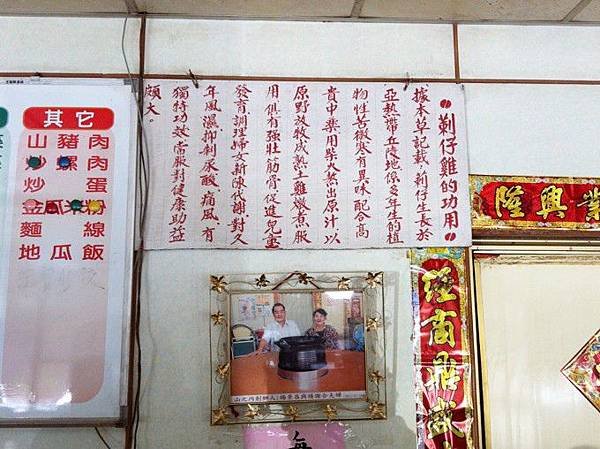 其它
山豬肉
炒螺肉
炒蛋
金瓜米粉
麵線
地瓜飯
剃仔雞的功用
據本草記載、剃仔生長於
亞熱帶丘陵地係多年生的植
物性苦微寒有異味配合高
貴中藥用柴火熬出原汁以
原野放牧成熟土雞燉煮服
用俱有强壮筋骨促進兒童
發育調理婦女新陳代謝對久
年風濕抑制尿酸痛風有
獨特功效常服對健康助益
頗大。
業興隆
經商鼎盛